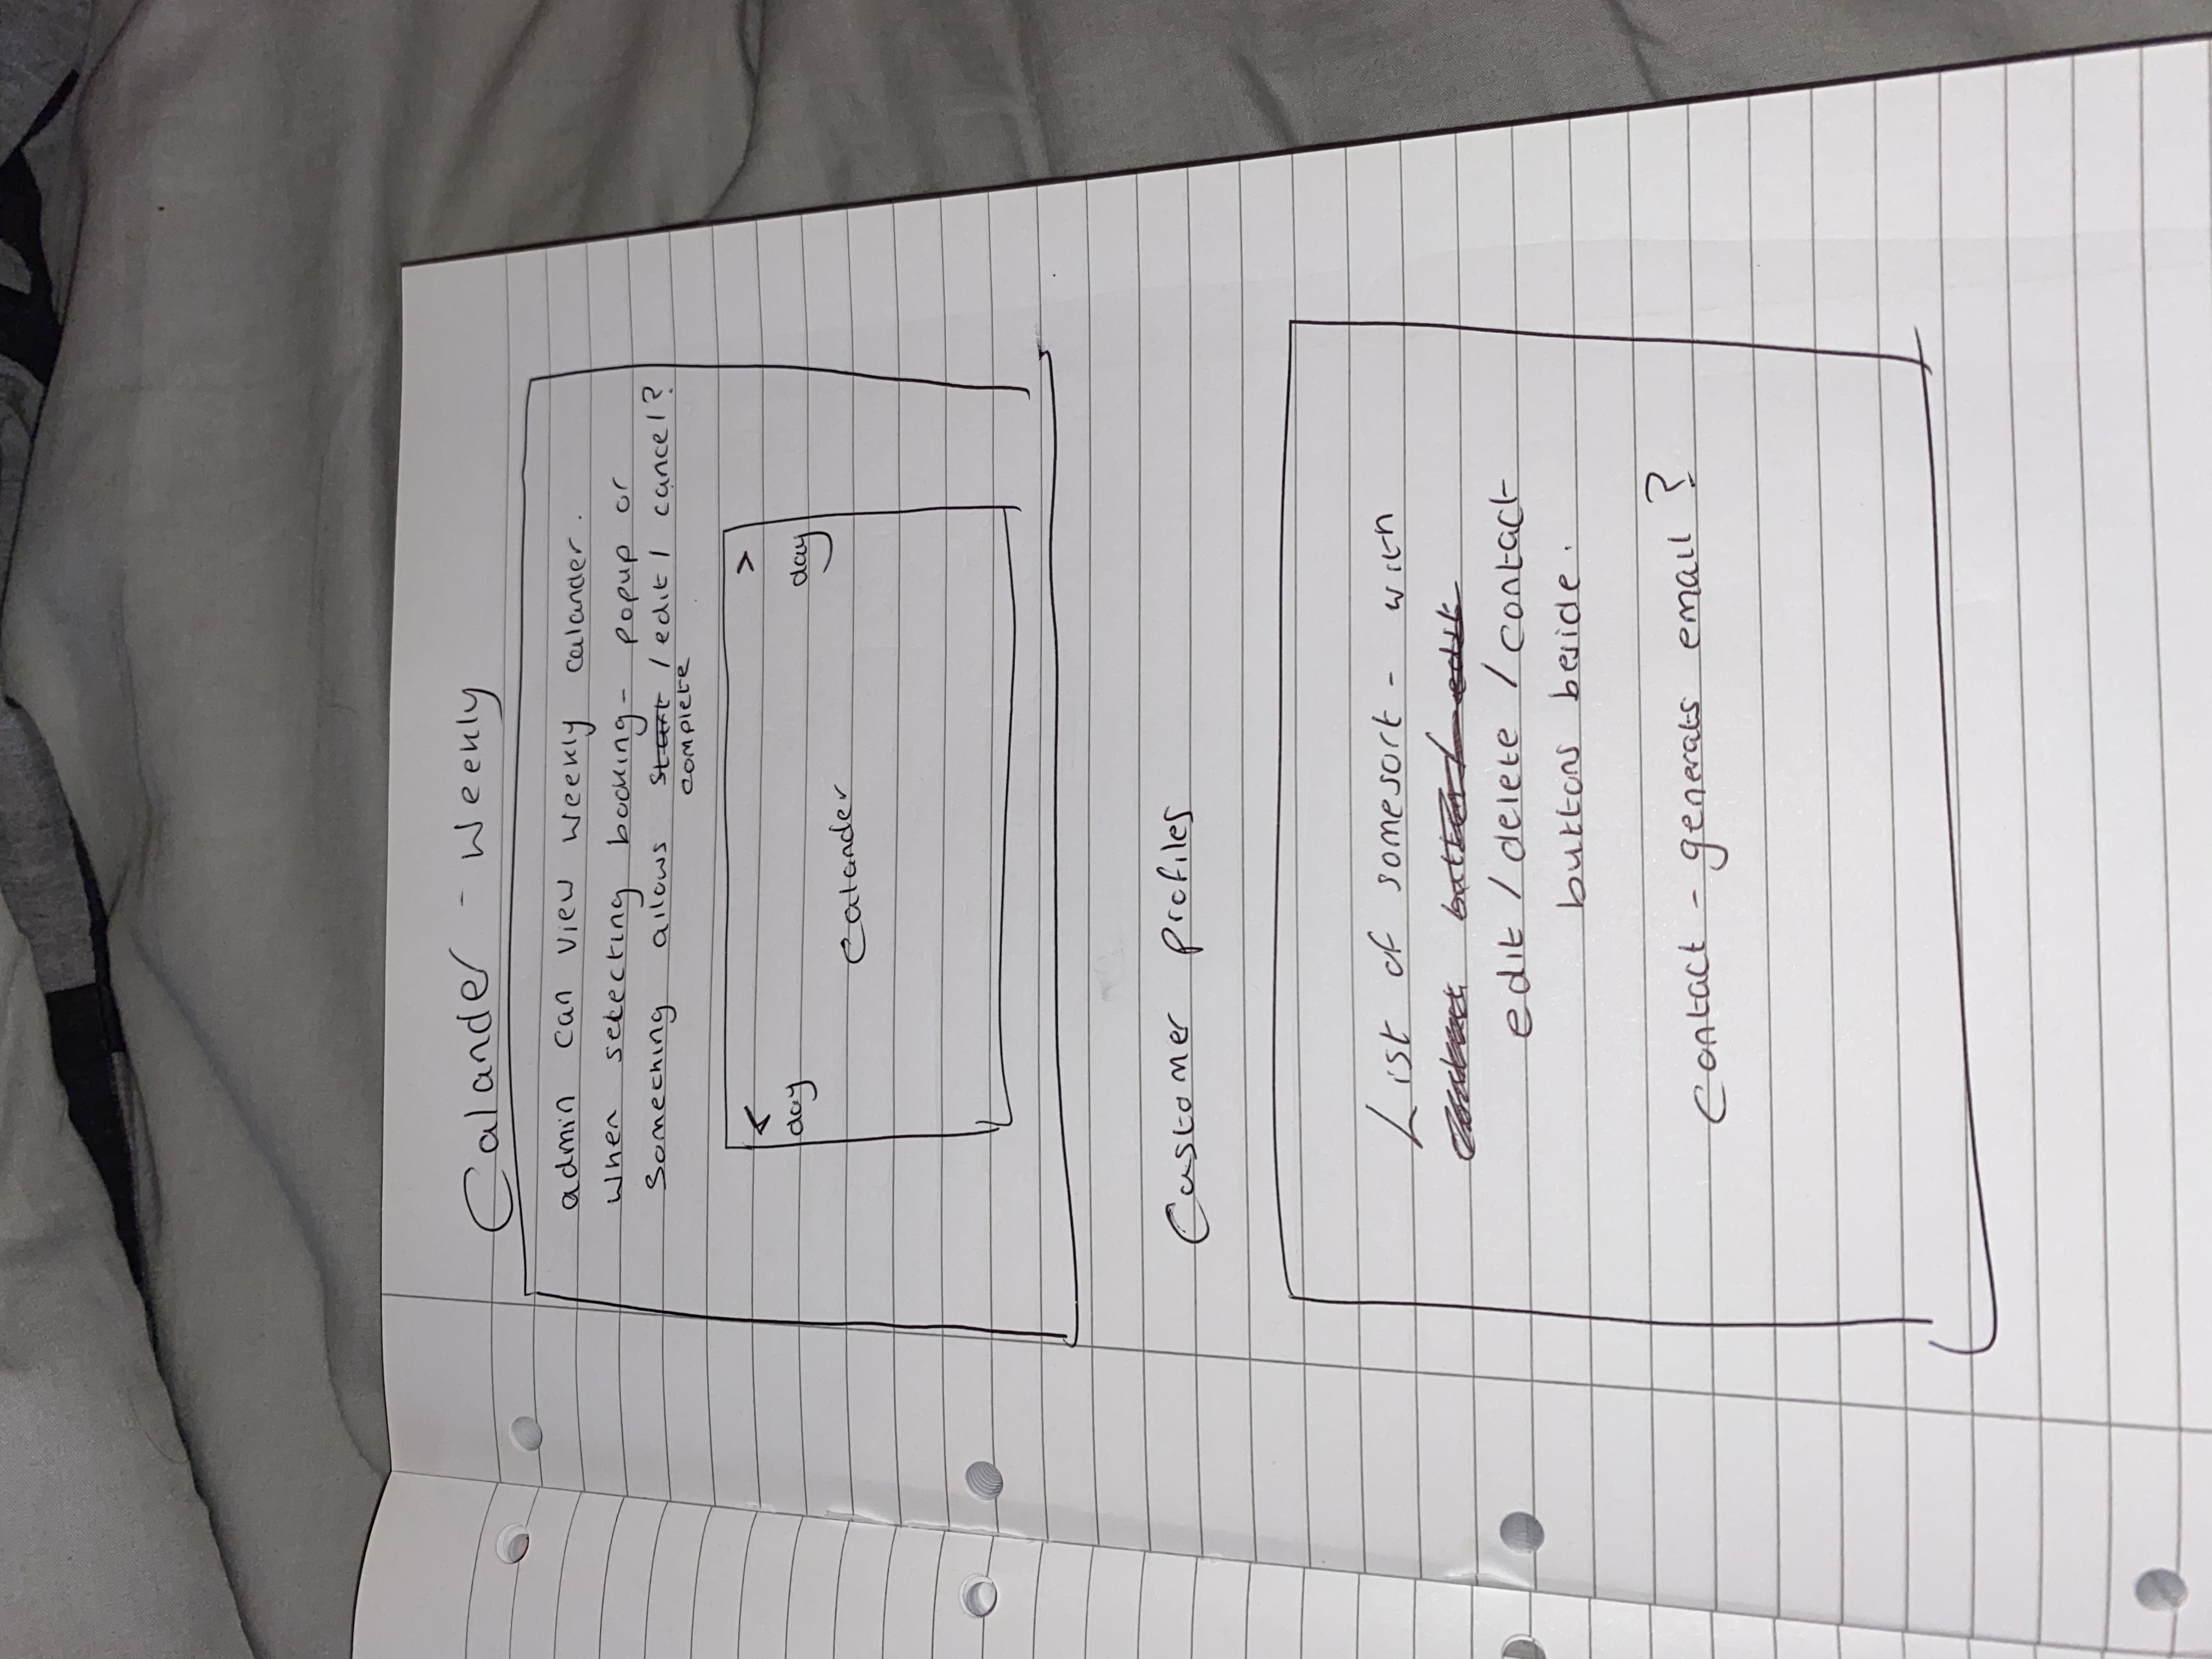 Calander - Weekly
admin can view weekly calander.
When selecting booking - popup or
something allows start / edit / cancel?
complete
< >
day day
Calander
Customer profiles
List of somesort - with
edit / delete / contact
buttons beside.
Contact - generats email?